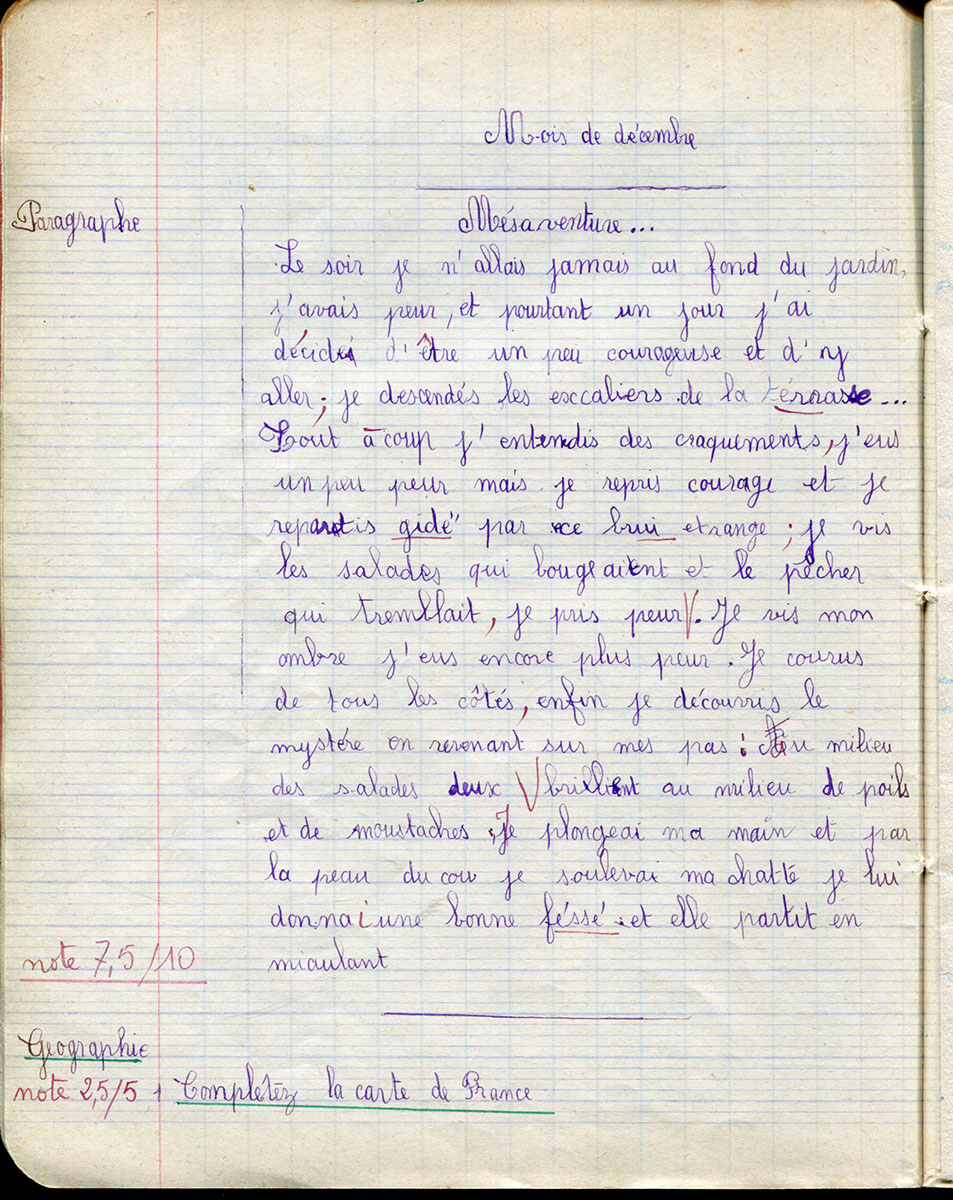 Mois de décembre
Paragraphe
Mésaventure...
Le soir je n'allais jamais au fond du jardin,
j'avais peur, et pourtant un jour j'ai
décidé d'être un peu courageuse et d'y
aller ; je descendés les exccaliers de la térrasse...
Tout à coup j'entendis des craquements, j'eus
un peu peur mais je repris courage et je
repartis gidé par ce brui etrange ; je vis
les salades qui bougeaient et le pêcher
qui tremblait, je pris peur. Je vis mon
ombre j'eus encore plus peur. Je courus
de tous les côtés, enfin je découvris le
mystére en revenant sur mes pas : au milieu
des salades deux V brillient au milieu de poils
et de moustaches. Je plongeai ma main et par
la peau du cou je soulevai ma chatte je lui
donnai une bonne féssé. et elle partit en
miaulant
note 7,5/10
Géographie
note 2,5/5 Complétéz la carte de France